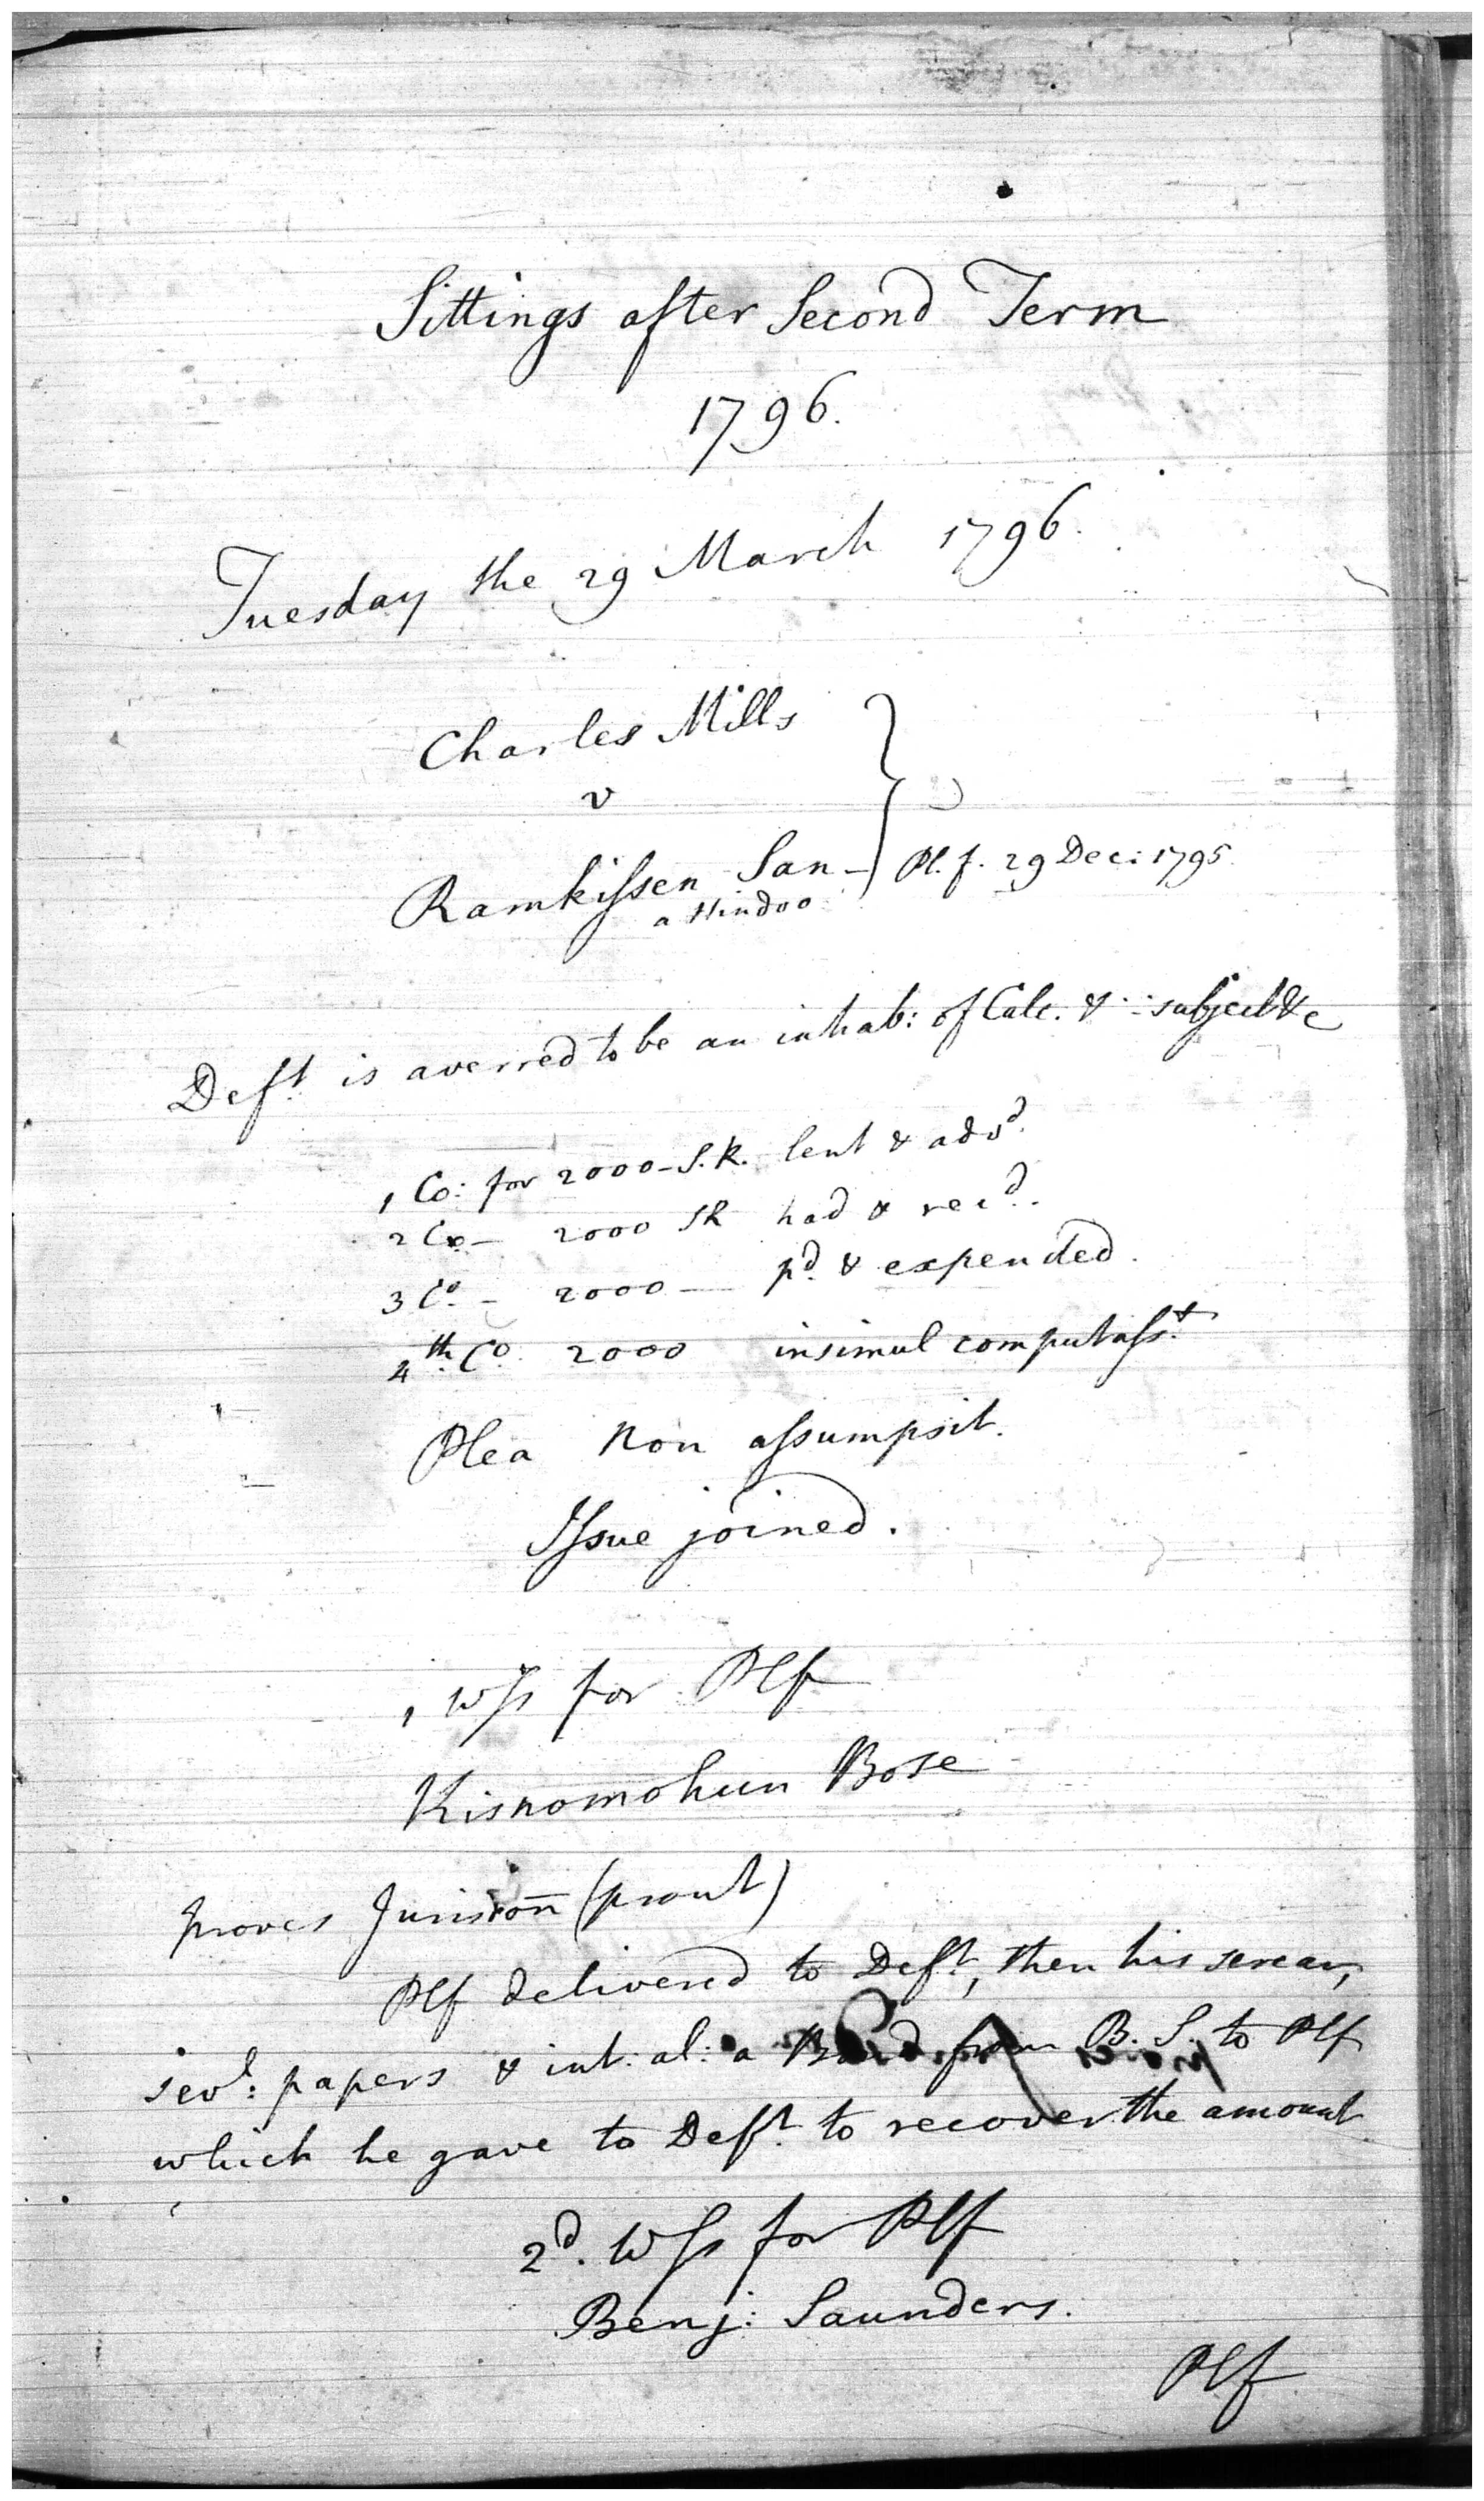 Sittings after Second Term
1796.
Tuesday the 29 March 1796.
Charles Mills
v
Ramkissen San — Pl. f. 29 Dec: 1795.
a Hindoo
Deft. is averred to be an inhab: of Calc. & subject &c
1 Co: for 2000 - S.R. lent & advd.
2 Co - 2000 SR had & recd.
3 Co. - 2000 — pd. & expended.
4th. Co. 2000 insimul computasst.
Plea Non assumpsit.
Issue joined.
1 Wss for Plf
Kisnomohun Bose
proves Jurison (prout)
Plf delivered to Deft., then his sercar,
sevl: papers & int: al: a Bond from B. S. to Plf
which he gave to Deft. to recover the amount
2d. Wss for Plf
Benj: Saunders.
Plf